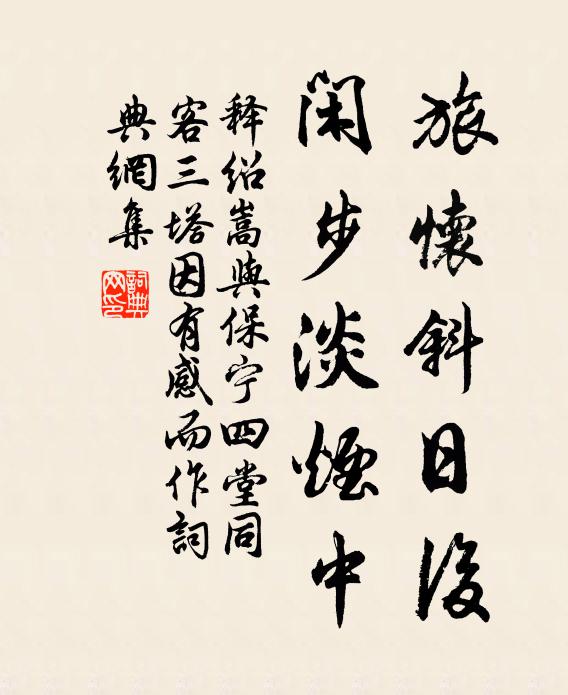 旅懷斜日後
閑步淡煙中
释绍嵩與保宁四堂同
客三塔因有感而作詞
典網集
詞典網印